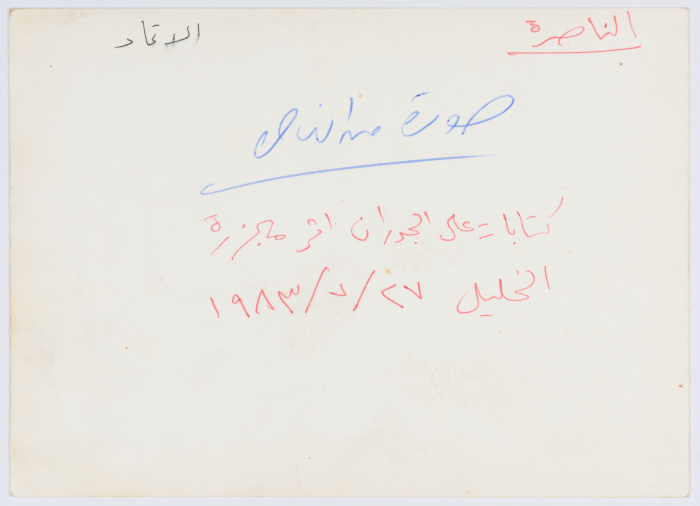 الناصرة
الاتحاد
صورة من
كتابات على الجدران اثر مجزرة
الخليل ٢٧/٧/١٩٨٣